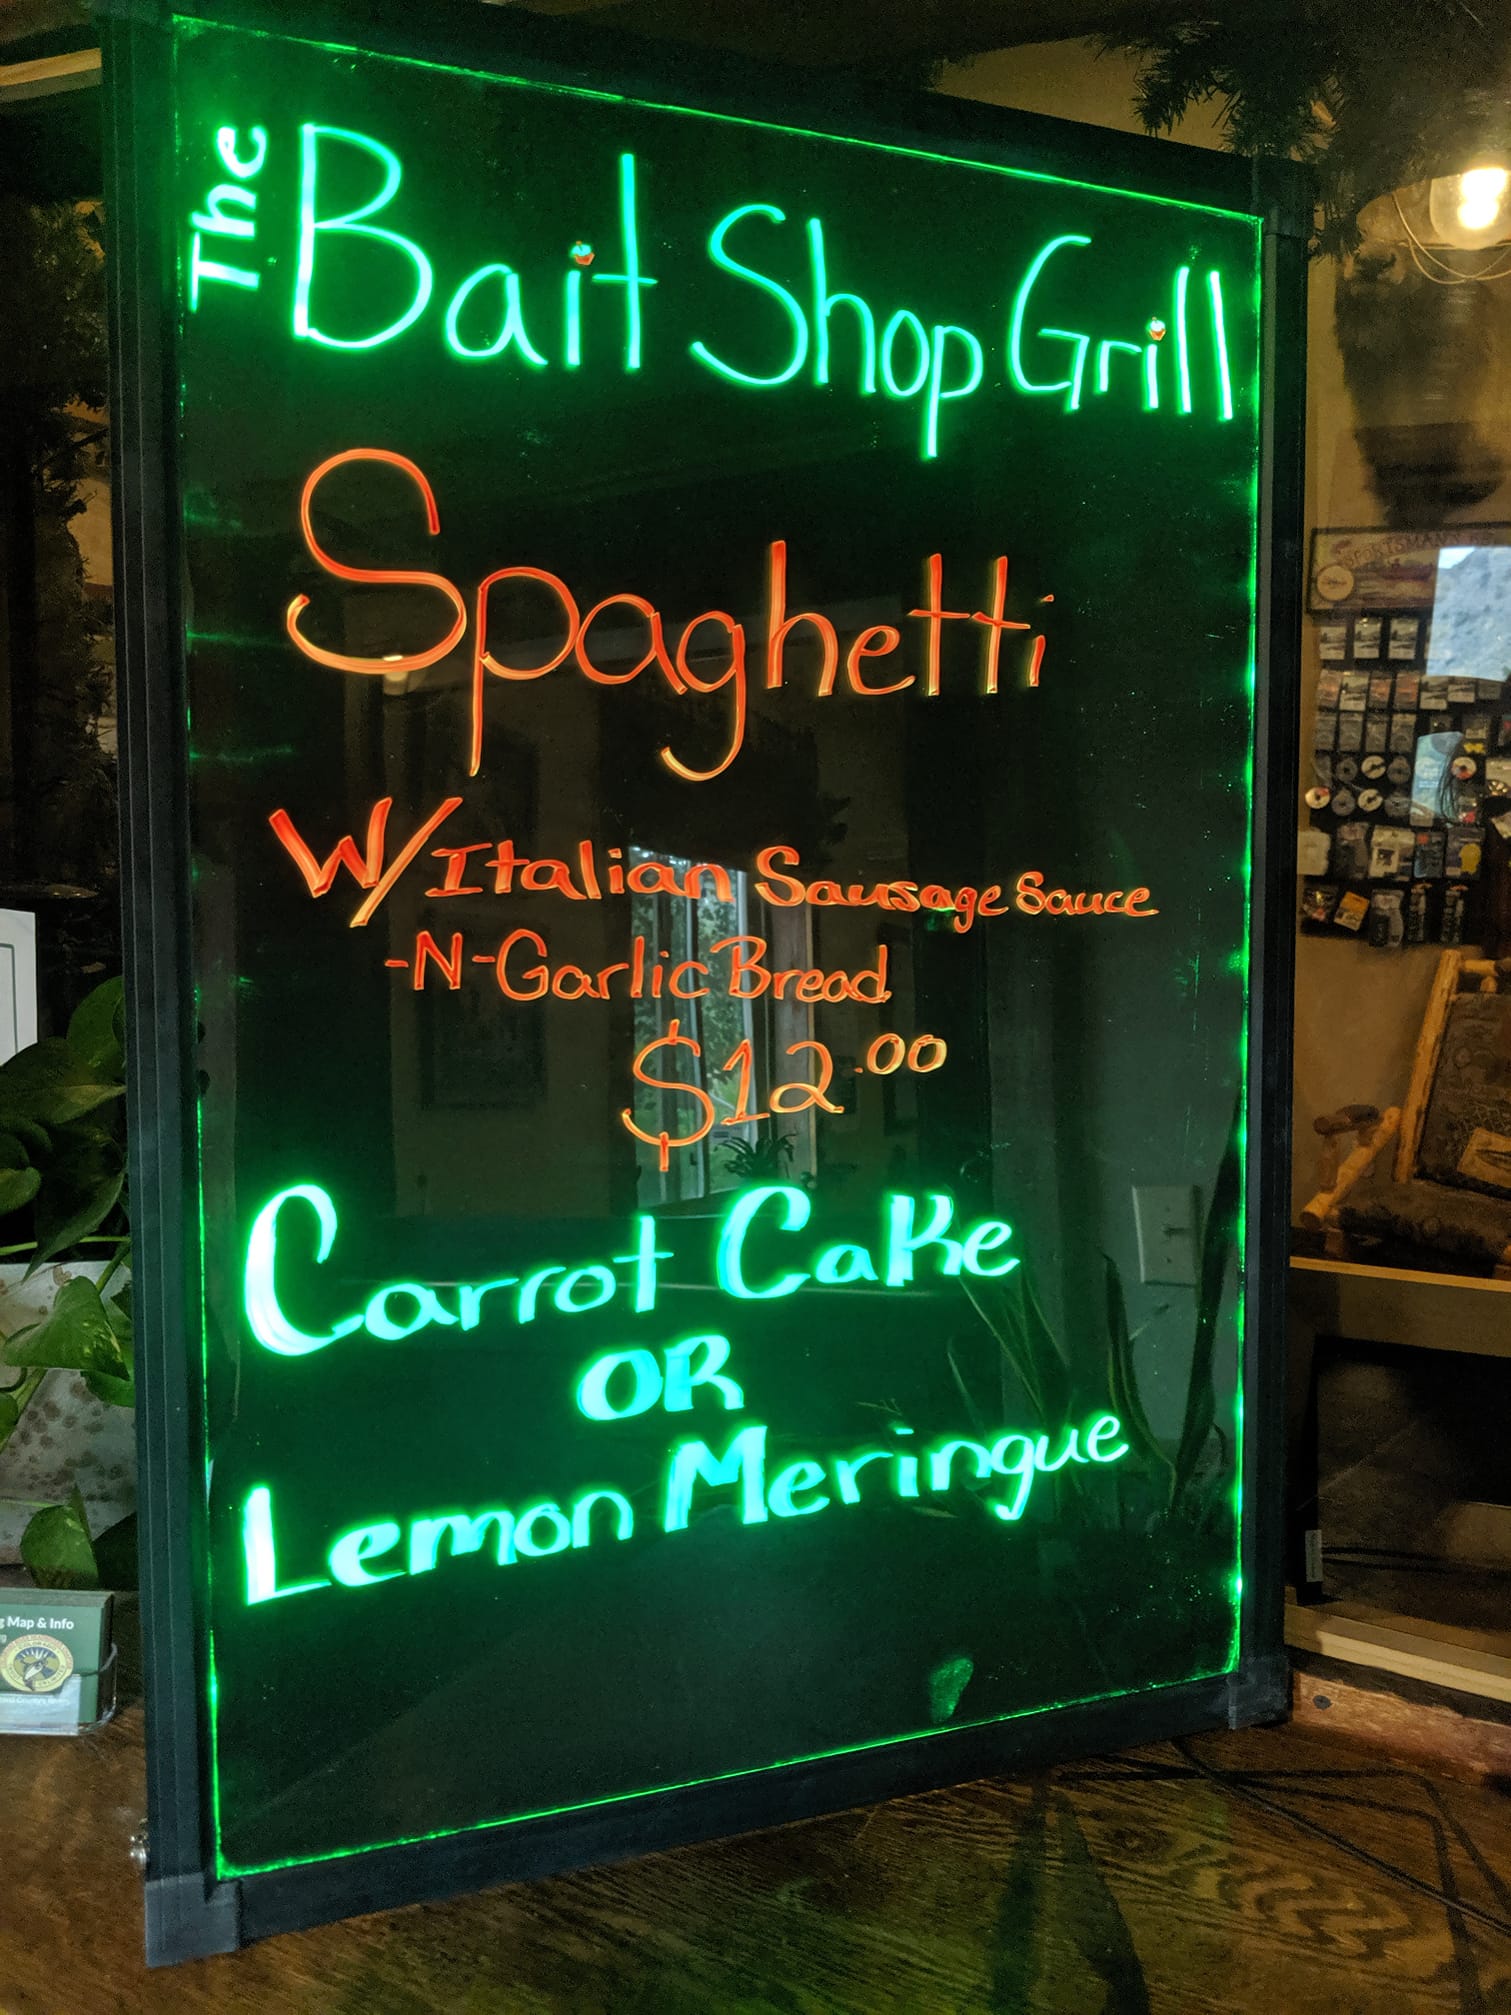 The Bait Shop Grill
Spaghetti
W/Italian Sausage Sauce
-N-Garlic Bread
$12.00
Carrot Cake
OR
Lemon Meringue
Map & Info
SPORTSMAN'S